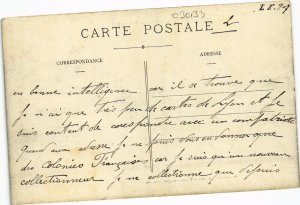 030133
2
CARTE POSTALE
CORRESPONDANCE
ADRESSE
en bonne intelligence car il se trouve que
je n'ai que très peu de cartes de Lyon et je
suis content de correspondre avec un compatriote
quand aux je ne puis vous en donner que
des Colonies Françaises car je suis qu'un nouveau
collectionneur je ne collectionne que depuis